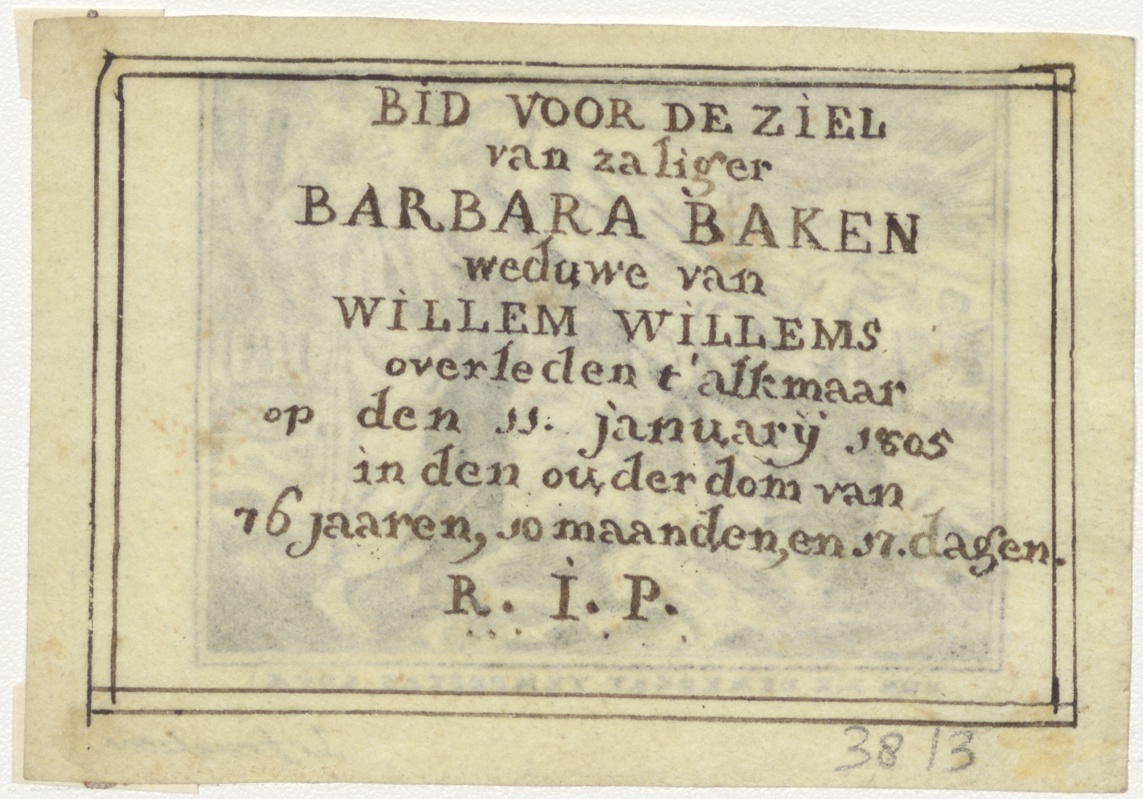 BID VOOR DE ZIEL
van zaliger
BARBARA BAKEN
weduwe van
WILLEM WILLEMS
overleden t'alkmaar
op den 11. januarij 1805
in den ouderdom van
76 jaaren, 10 maanden, en 17. dagen.
R. I. P.
38/3